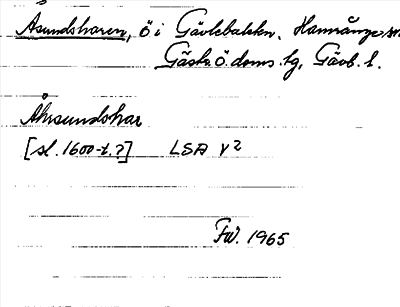 Åsundsharen, ö i Gävlebukten. Hamrånge sn
Gästr. ö. doms. tg, Gävb. l.
Åhrsundshar
[sl. 1600-t.?] LSA Y2
FW. 1965